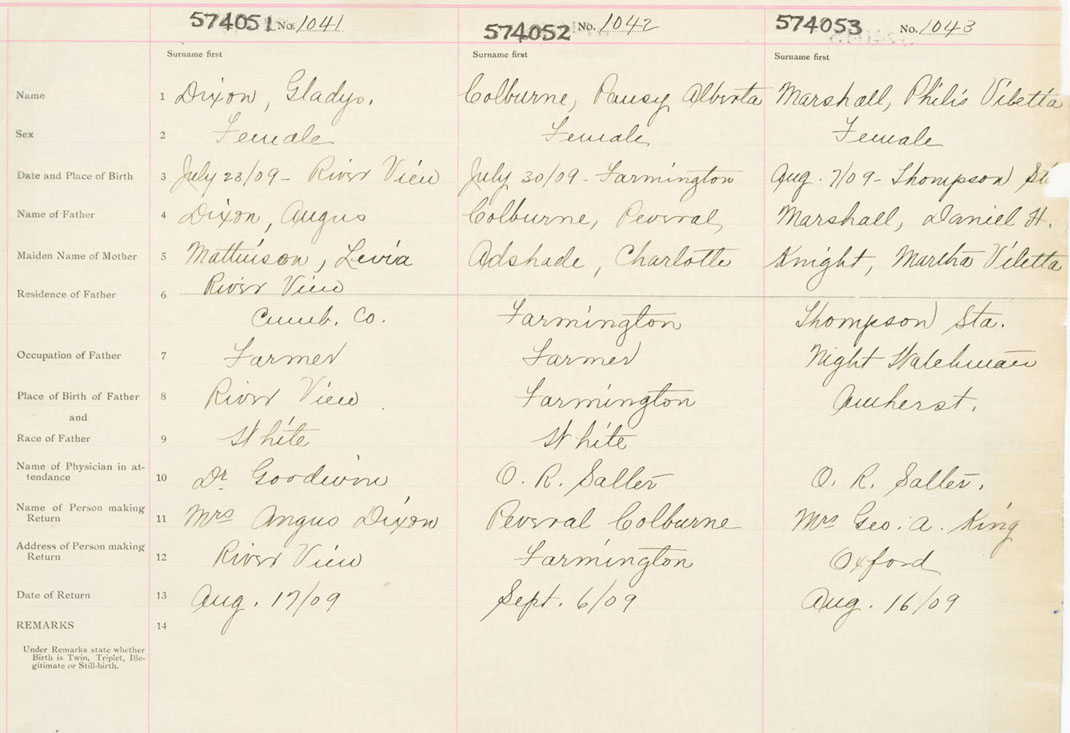 574051 No. 1041 574052 No. 1042 574053 No. 1043
Surname first Surname first Surname first
Name 1 Dixon, Gladys. Colburne, Pansy Alberta Marshall, Philis Viletta
Sex 2 Female Female Female
Date and Place of Birth 3 July 23/09 - River View July 30/09 - Farmington Aug. 7/09 - Thompson St
Name of Father 4 Dixon, Angus Colburne, Peveral Marshall, Daniel H.
Maiden Name of Mother 5 Mattinson, Levia Adshade, Charlotte Knight, Martha Viletta
River View
Residence of Father 6
Cumb. Co. Farmington Thompson Sta.
Occupation of Father 7 Farmer Farmer Night Watchman
Place of Birth of Father 8 River View Farmington Amherst.
and
Race of Father 9 White White
Name of Physician in at-
tendance 10 Dr Goodwin O. R. Salter O. R. Salter.
Name of Person making
Return 11 Mrs Angus Dixon Peveral Colburne Mrs Geo. A. King
Address of Person making
Return 12 River View Farmington Oxford
Date of Return 13 Aug. 17/09 Sept. 6/09 Aug. 16/09
REMARKS 14
Under Remarks state whether
Birth is Twin, Triplet, Ille-
gitimate or Still-birth.